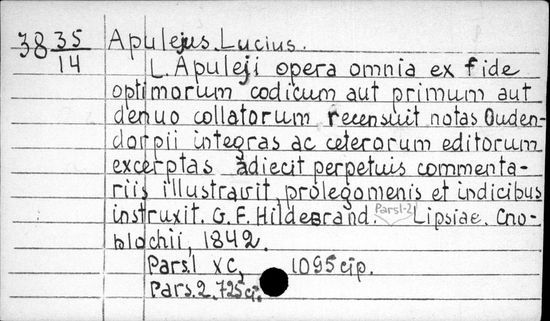 38 35/14 Apulejus. Lucius.
L. Apuleji opera omnia ex fide
optimorum codicum aut primum aut
denuo collatorum recensuit notas Ouden-
dorpii integras ac ceterorum editorum
excerptas adiecit perpetuis commenta-
riis illustravit, prolegomenis et indicibus
instruxit. G. F. Hildebrand. Pars 1-2 Lipsiae. Cno-
blochii, 1842.
Pars.1 XC, 1095 стр.
Pars.2. 725 стр.